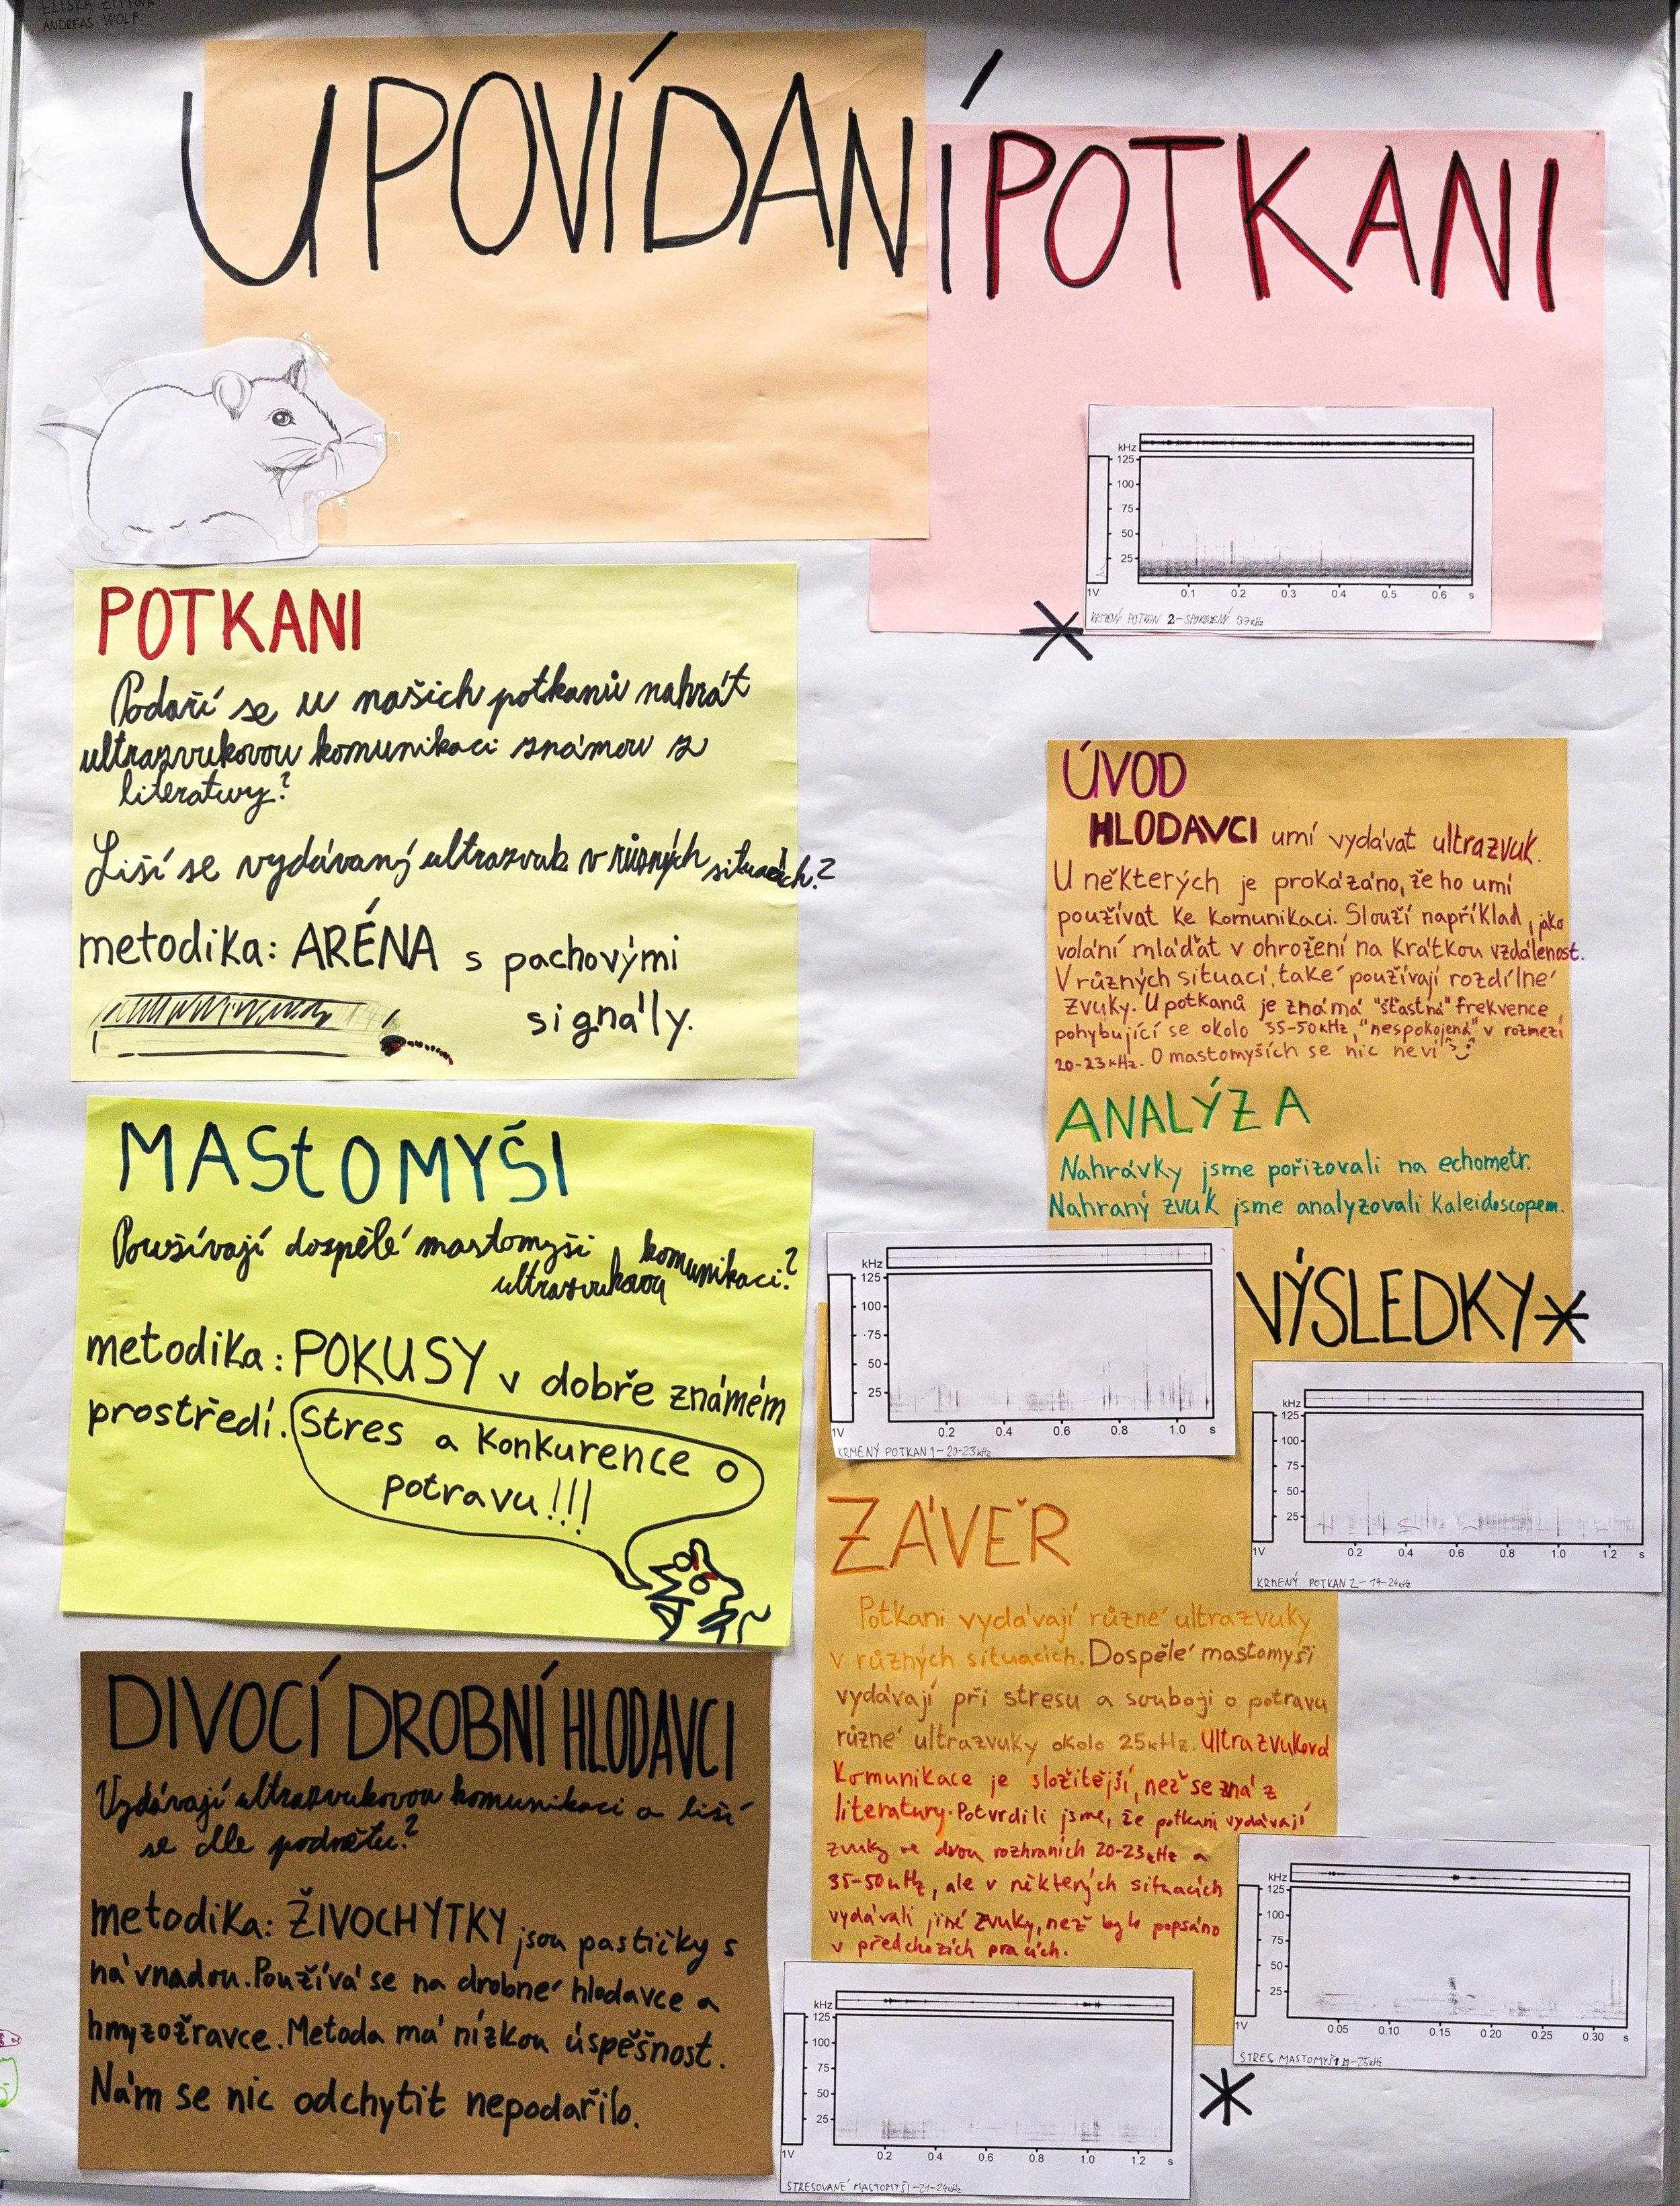 ELIŠKA
ANDREAS WOLF
UPOVÍDANÍ POTKANI
kHz
125
100
75
50
25
1V
0.1 0.2 0.3 0.4 0.5 0.6 s
KRMENÝ POTKAN 2 - SPOKOJENÝ 37kHz
POTKANI
Podaří se u našich potkanů nahrát
ultrazvukovou komunikaci známou z
literatury?
Liší se vydávaný ultrazvuk v různých situacích?
metodika: ARÉNA s pachovými
signály.
MAStOMYŠI
Používají dospělé mastomyši
ultrazvukovou komunikaci?
metodika: POKUSY v dobře známém
prostředí. Stres a Konkurence o
potravu!!!
DIVOCÍ DROBNÍ HLODAVCI
Vydávají ultrazvukovou komunikaci a liší
se dle podnětu?
metodika: ŽIVOCHYTKY jsou pastičky s
návnadou. Používá se na drobné hlodavce a
hmyzožravce. Metoda má nízkou úspěšnost.
Nám se nic odchytit nepodařilo.
ÚVOD
HLODAVCI umí vydávat ultrazvuk.
U některých je prokázáno, že ho umí
používat ke komunikaci. Slouží například, jako
volání mláďat v ohrožení na krátkou vzdálenost.
V různých situací, také používají rozdílné
zvuky. U potkanů je známá "šťastná" frekvence
pohybující se okolo 35-50kHz, "nespokojená" v rozmezí
20-23kHz. O mastomyších se nic neví
ANALÝZA
Nahrávky jsme pořizovali na echometr.
Nahraný zvuk jsme analyzovali Kaleidoscopem.
VÝSLEDKY*
kHz
125
100
75
50
25
1V
0.2 0.4 0.6 0.8 1.0 s
KRMENÝ POTKAN 1 - 20-23kHz
kHz
125
100
75
50
25
1V
0.2 0.4 0.6 0.8 1.0 1.2 s
KRMENÝ POTKAN 2 - 19-24kHz
ZÁVĚR
Potkani vydávají různé ultrazvuky
v různých situacích. Dospělé mastomyši
vydávají při stresu a souboji o potravu
různé ultrazvuky okolo 25kHz. Ultrazvuková
Komunikace je složitější, než se zná z
literatury. Potvrdili jsme, že potkani vydávají
zvuky ve dvou rozhraních 20-23kHz a
35-50kHz, ale v některých situacích
vydávali jiné zvuky, než bylo popsáno
v předchozích pracích.
kHz
125
100
75
50
25
1V
0.05 0.10 0.15 0.20 0.25 0.30 s
STRES MASTOMYŠI
kHz
125
100
75
50
25
1V
0.2 0.4 0.6 0.8 1.0 1.2 s
STRESOVANÉ MASTOMYŠI - 21-24kHz